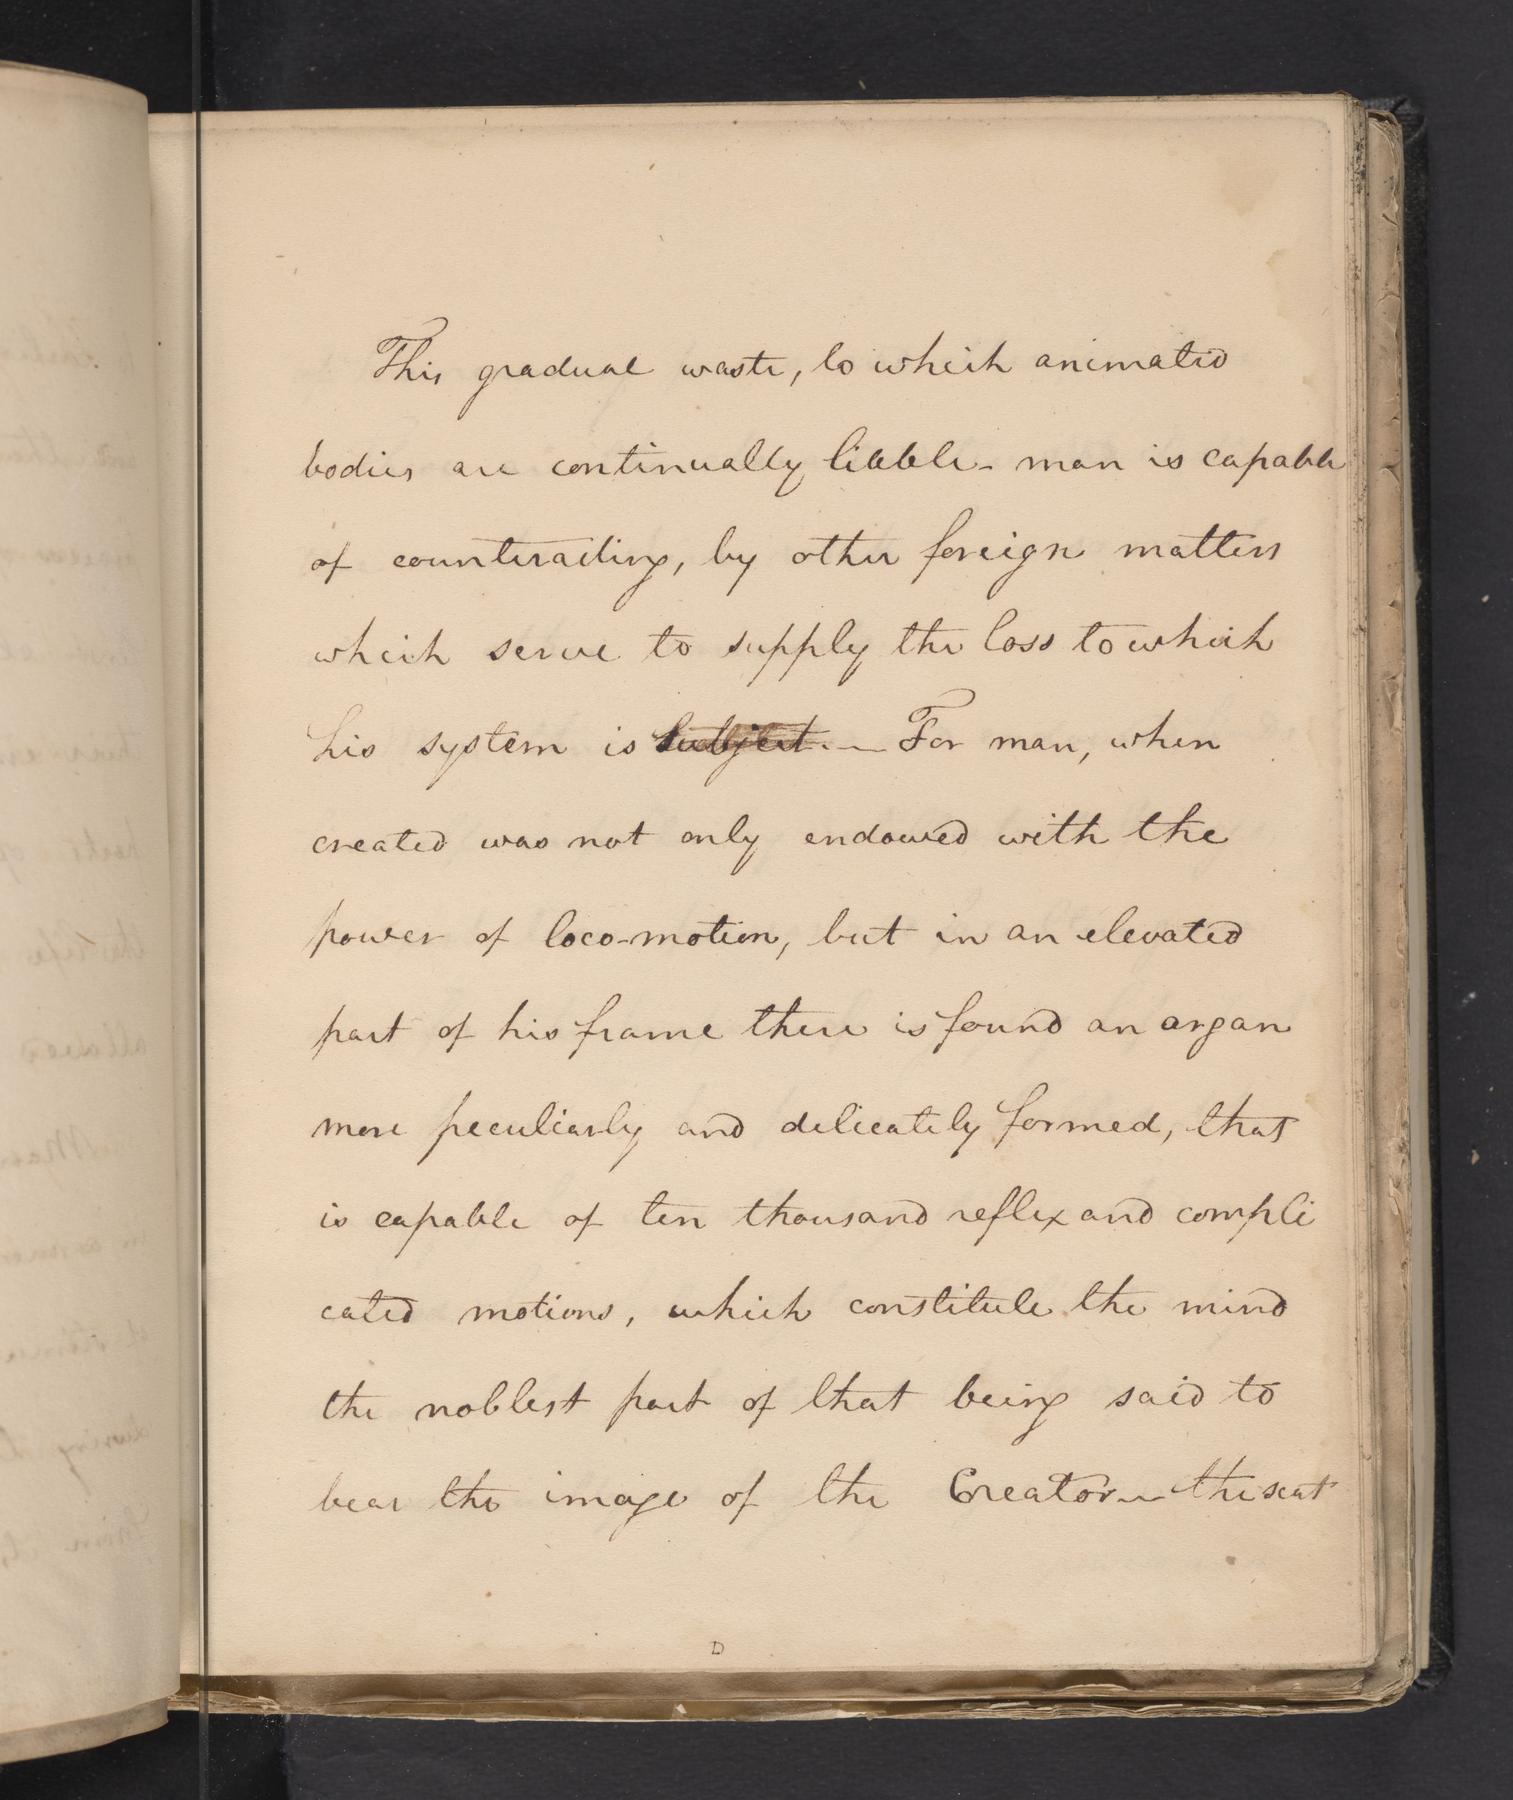 This gradual waste, to which animated
bodies are continually liable - man is capable
of counteracting, by other foreign matters
which serve to supply the loss to which
his system is subject. — For man, when
created was not only endowed with the
power of loco-motion, but in an elevated
part of his frame there is found an organ
more peculiarly and delicately formed, that
is capable of ten thousand reflex and compli
cated motions, which constitute the mind
the noblest part of that being said to
bear the image of the Creator — the seat
D